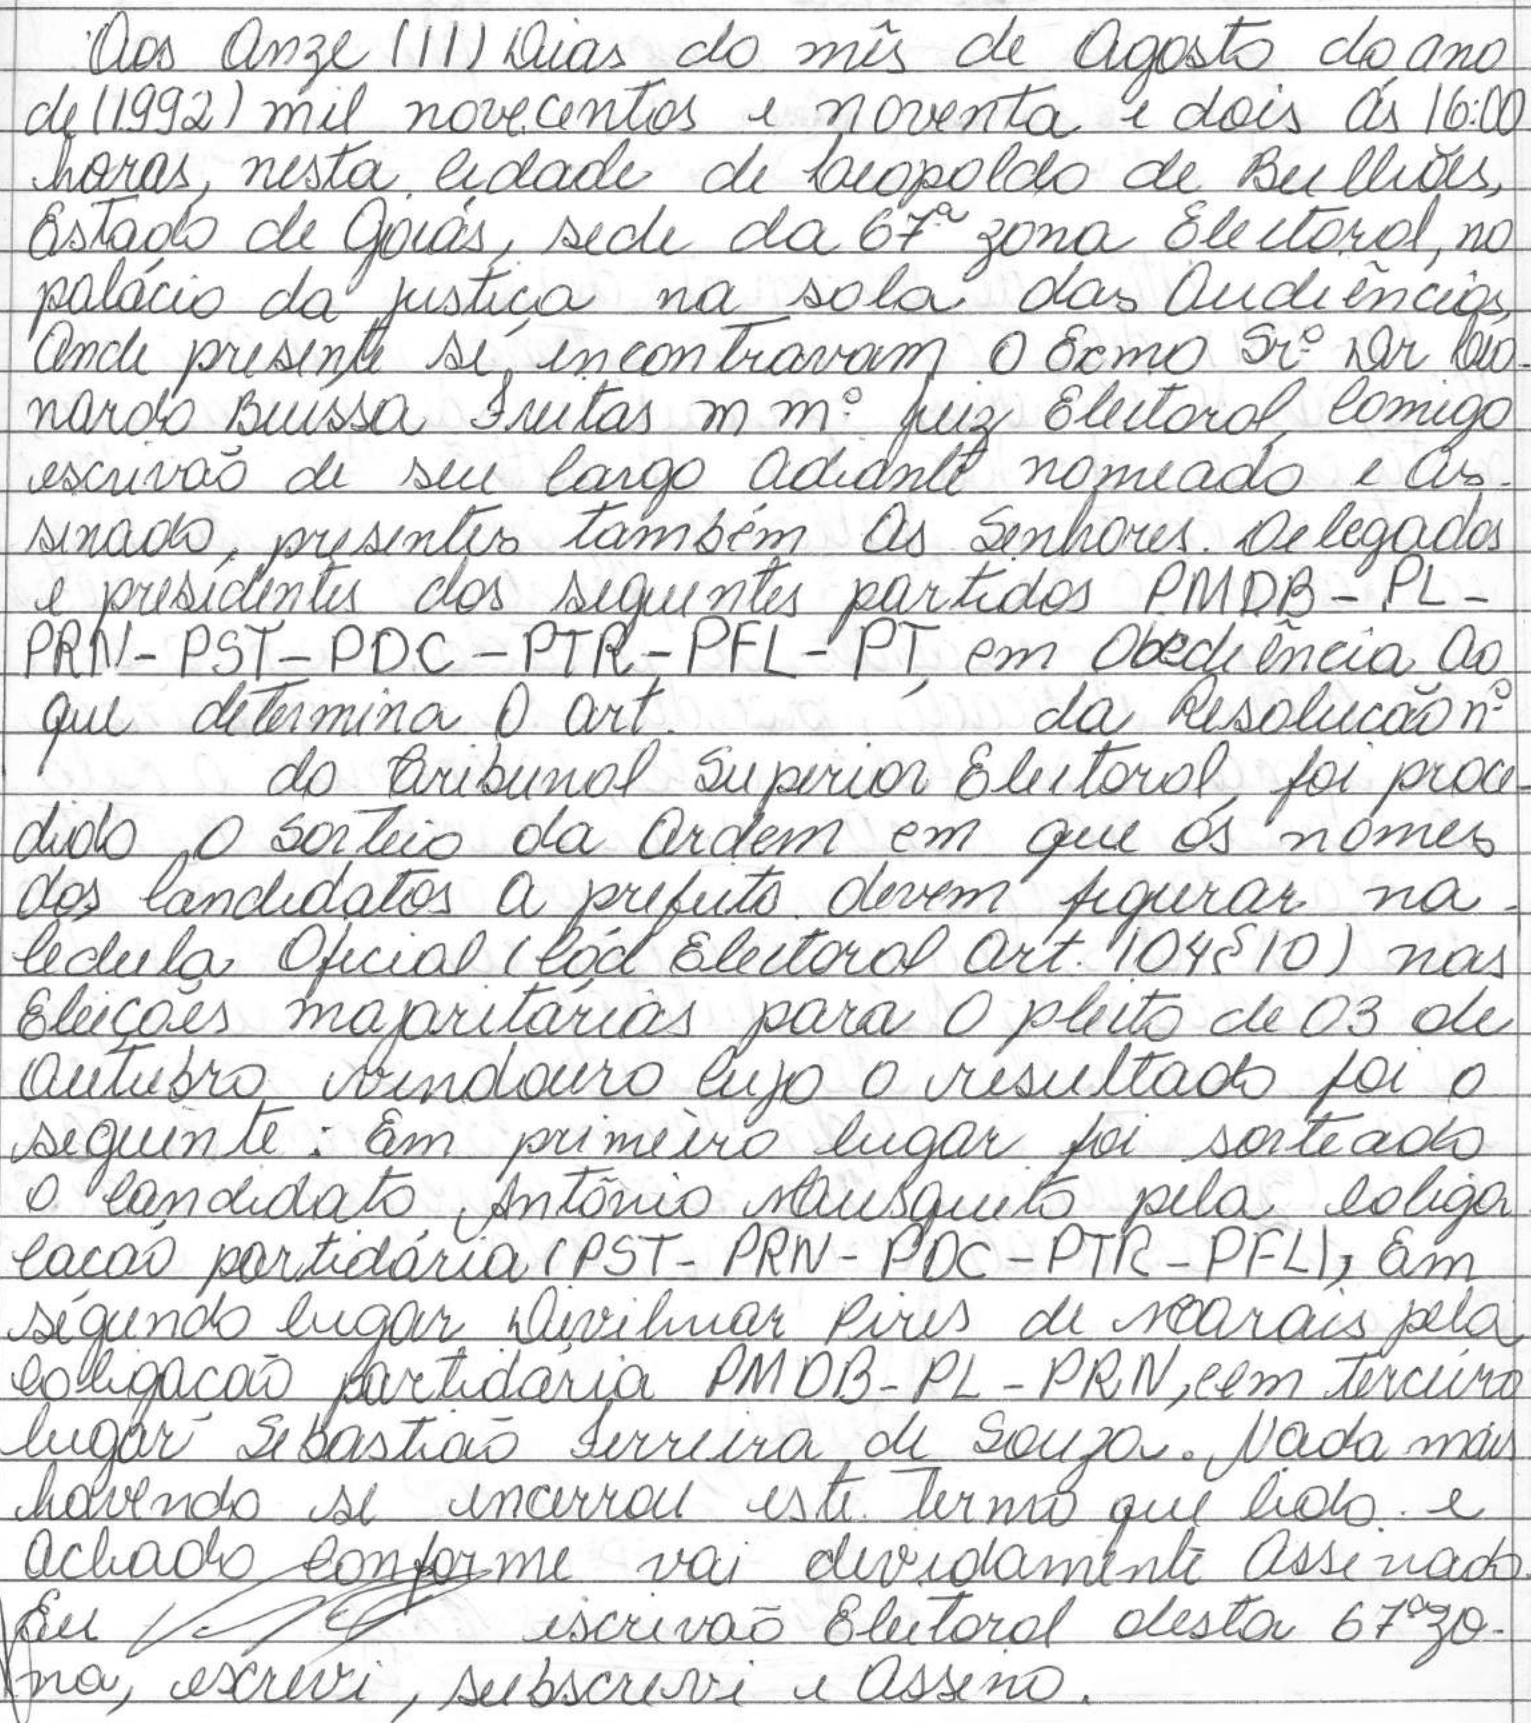 Aos Onze (11) Dias do mês de Agosto do ano
de (1992) mil novecentos e noventa e dois às 16:00
horas, nesta cidade de Leopoldo de Bulhões,
Estado de Goiás, sede da 67ª zona Eleitoral, no
palácio da justiça na sala das Audiências,
Onde presente se encontravam O Exmo Srº Dr Leo-
nardo Buissa Freitas m mº juiz Eleitoral, Comigo
escrivão de seu Cargo Adiante nomeado e As-
sinado, presentes também Os Senhores. Delegados
e presidentes dos seguintes partidos PMDB - PL -
PRN - PST - PDC - PTR - PFL - PT, em Obediência Ao
que determina O art. da Resolução nº
do Tribunal Superior Eleitoral, foi proce-
dido O Sorteio da Ordem em que os nomes
dos Candidatos A prefeito devem figurar na
Cédula Oficial (Cód Eleitoral Art. 104 § 10) nas
Eleições majoritárias para O pleito de 03 de
Outubro vindouro Cujo o resultado foi o
seguinte: Em primeiro lugar foi sorteado
o Candidato Antônio Mausqueito pela Coliga
cação partidária (PST - PRN - PDC - PTR - PFL), Em
segundo lugar Divilmar Pires de Morais pela
Coligação partidária PMDB - PL - PRN, e em terceiro
lugar Sebastião Ferreira de Souza. Nada mais
havendo se encerrou este termo que lido e
Achado Conforme vai devidamente Assinado.
Eu escrivão Eleitoral desta 67ª zo-
na, escrevi, subscrevi e Assino.